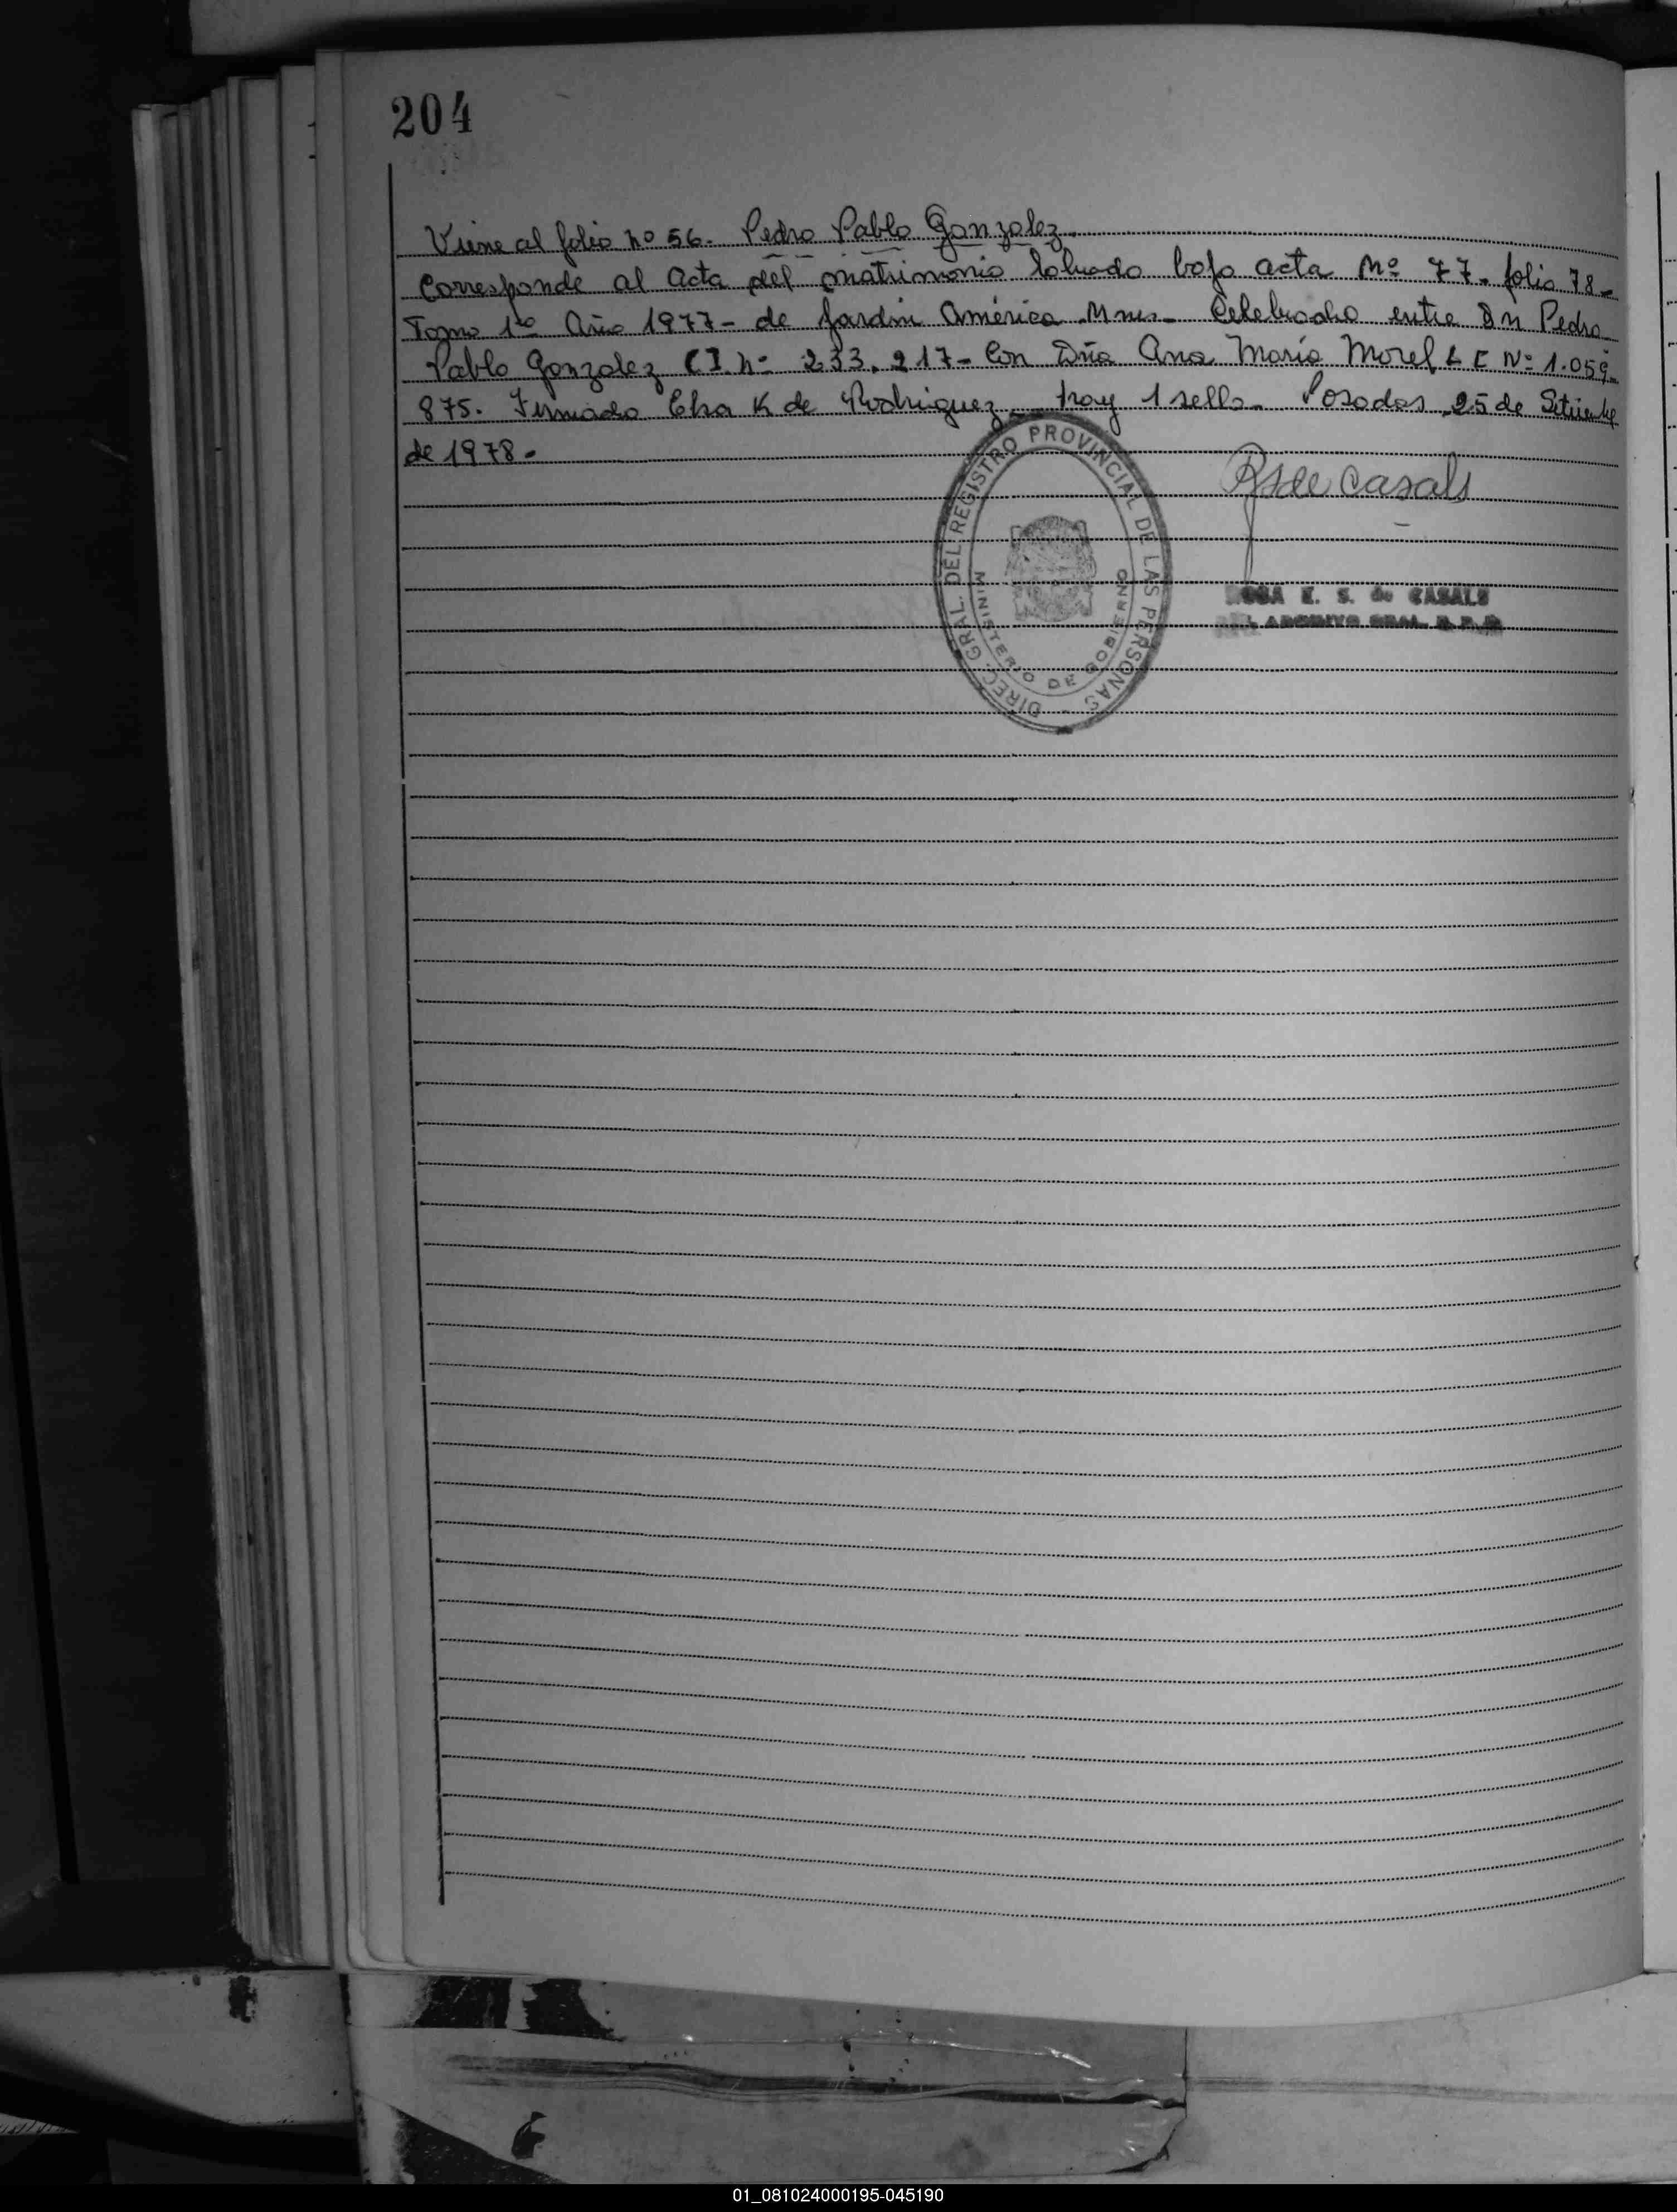 204
Viene al folio nº 56. Pedro Pablo Gonzalez.
Corresponde al Acta del matrimonio labrado bajo acta Nº 77. folio 78-
Tomo 1º Año 1977- de Jardin América Mnes- Celebrado entre Dn Pedro
Pablo Gonzalez C I. nº 233.217- Con Dña Ana María Morel L C Nº 1.059.
875. Firmado Elsa K de Rodriguez- hay 1 sello- Posadas 25 de Setiembre
de 1978.
DIREC. GRAL. DEL REGISTRO PROVINCIAL DE LAS PERSONAS
MINISTERIO DE GOBIERNO
de Casals
ROSA E. S. de CASALS
ARCHIVO GRAL. R. P. P.
01_081024000195-045190